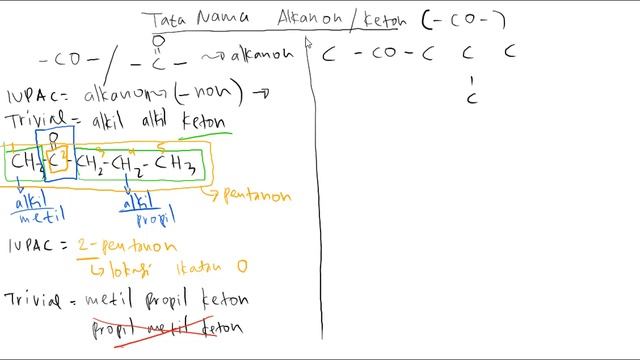 Tata Nama Alkanon / keton (-CO-)
-CO- / - C - ~> alkanon
O
IUPAC = alkanon ~ (-non) →
Trivial = alkil alkil keton
O
CH2 - C - CH2 - CH2 - CH3
1 2 3 4 5
alkil alkil → pentanon
metil propil
IUPAC = 2-pentanon
↳ lokasi ikatan O
Trivial = metil propil keton
propil metil keton
C - CO - C C C
C